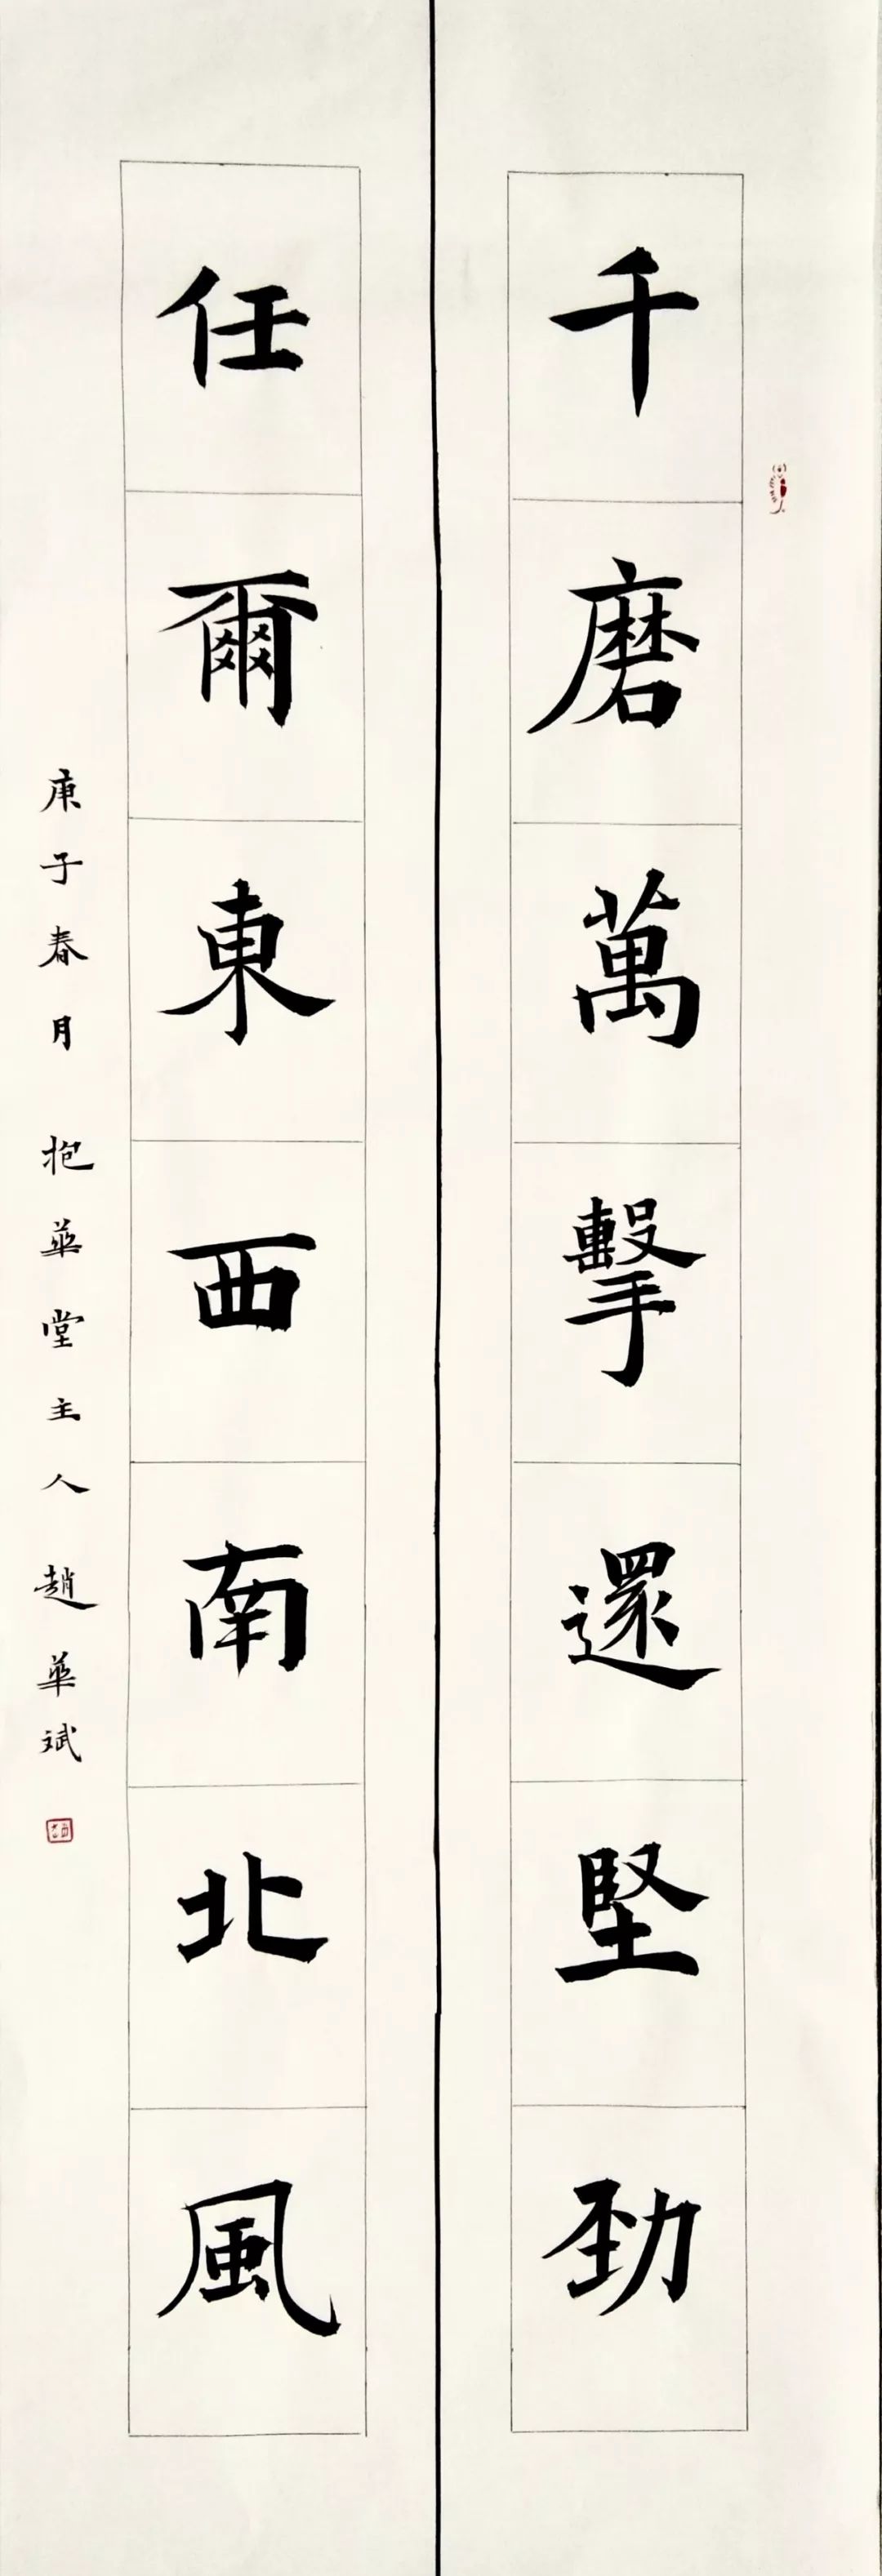 千磨萬擊還堅勁
任爾東西南北風
庚子春月 抱華堂主人 趙華斌